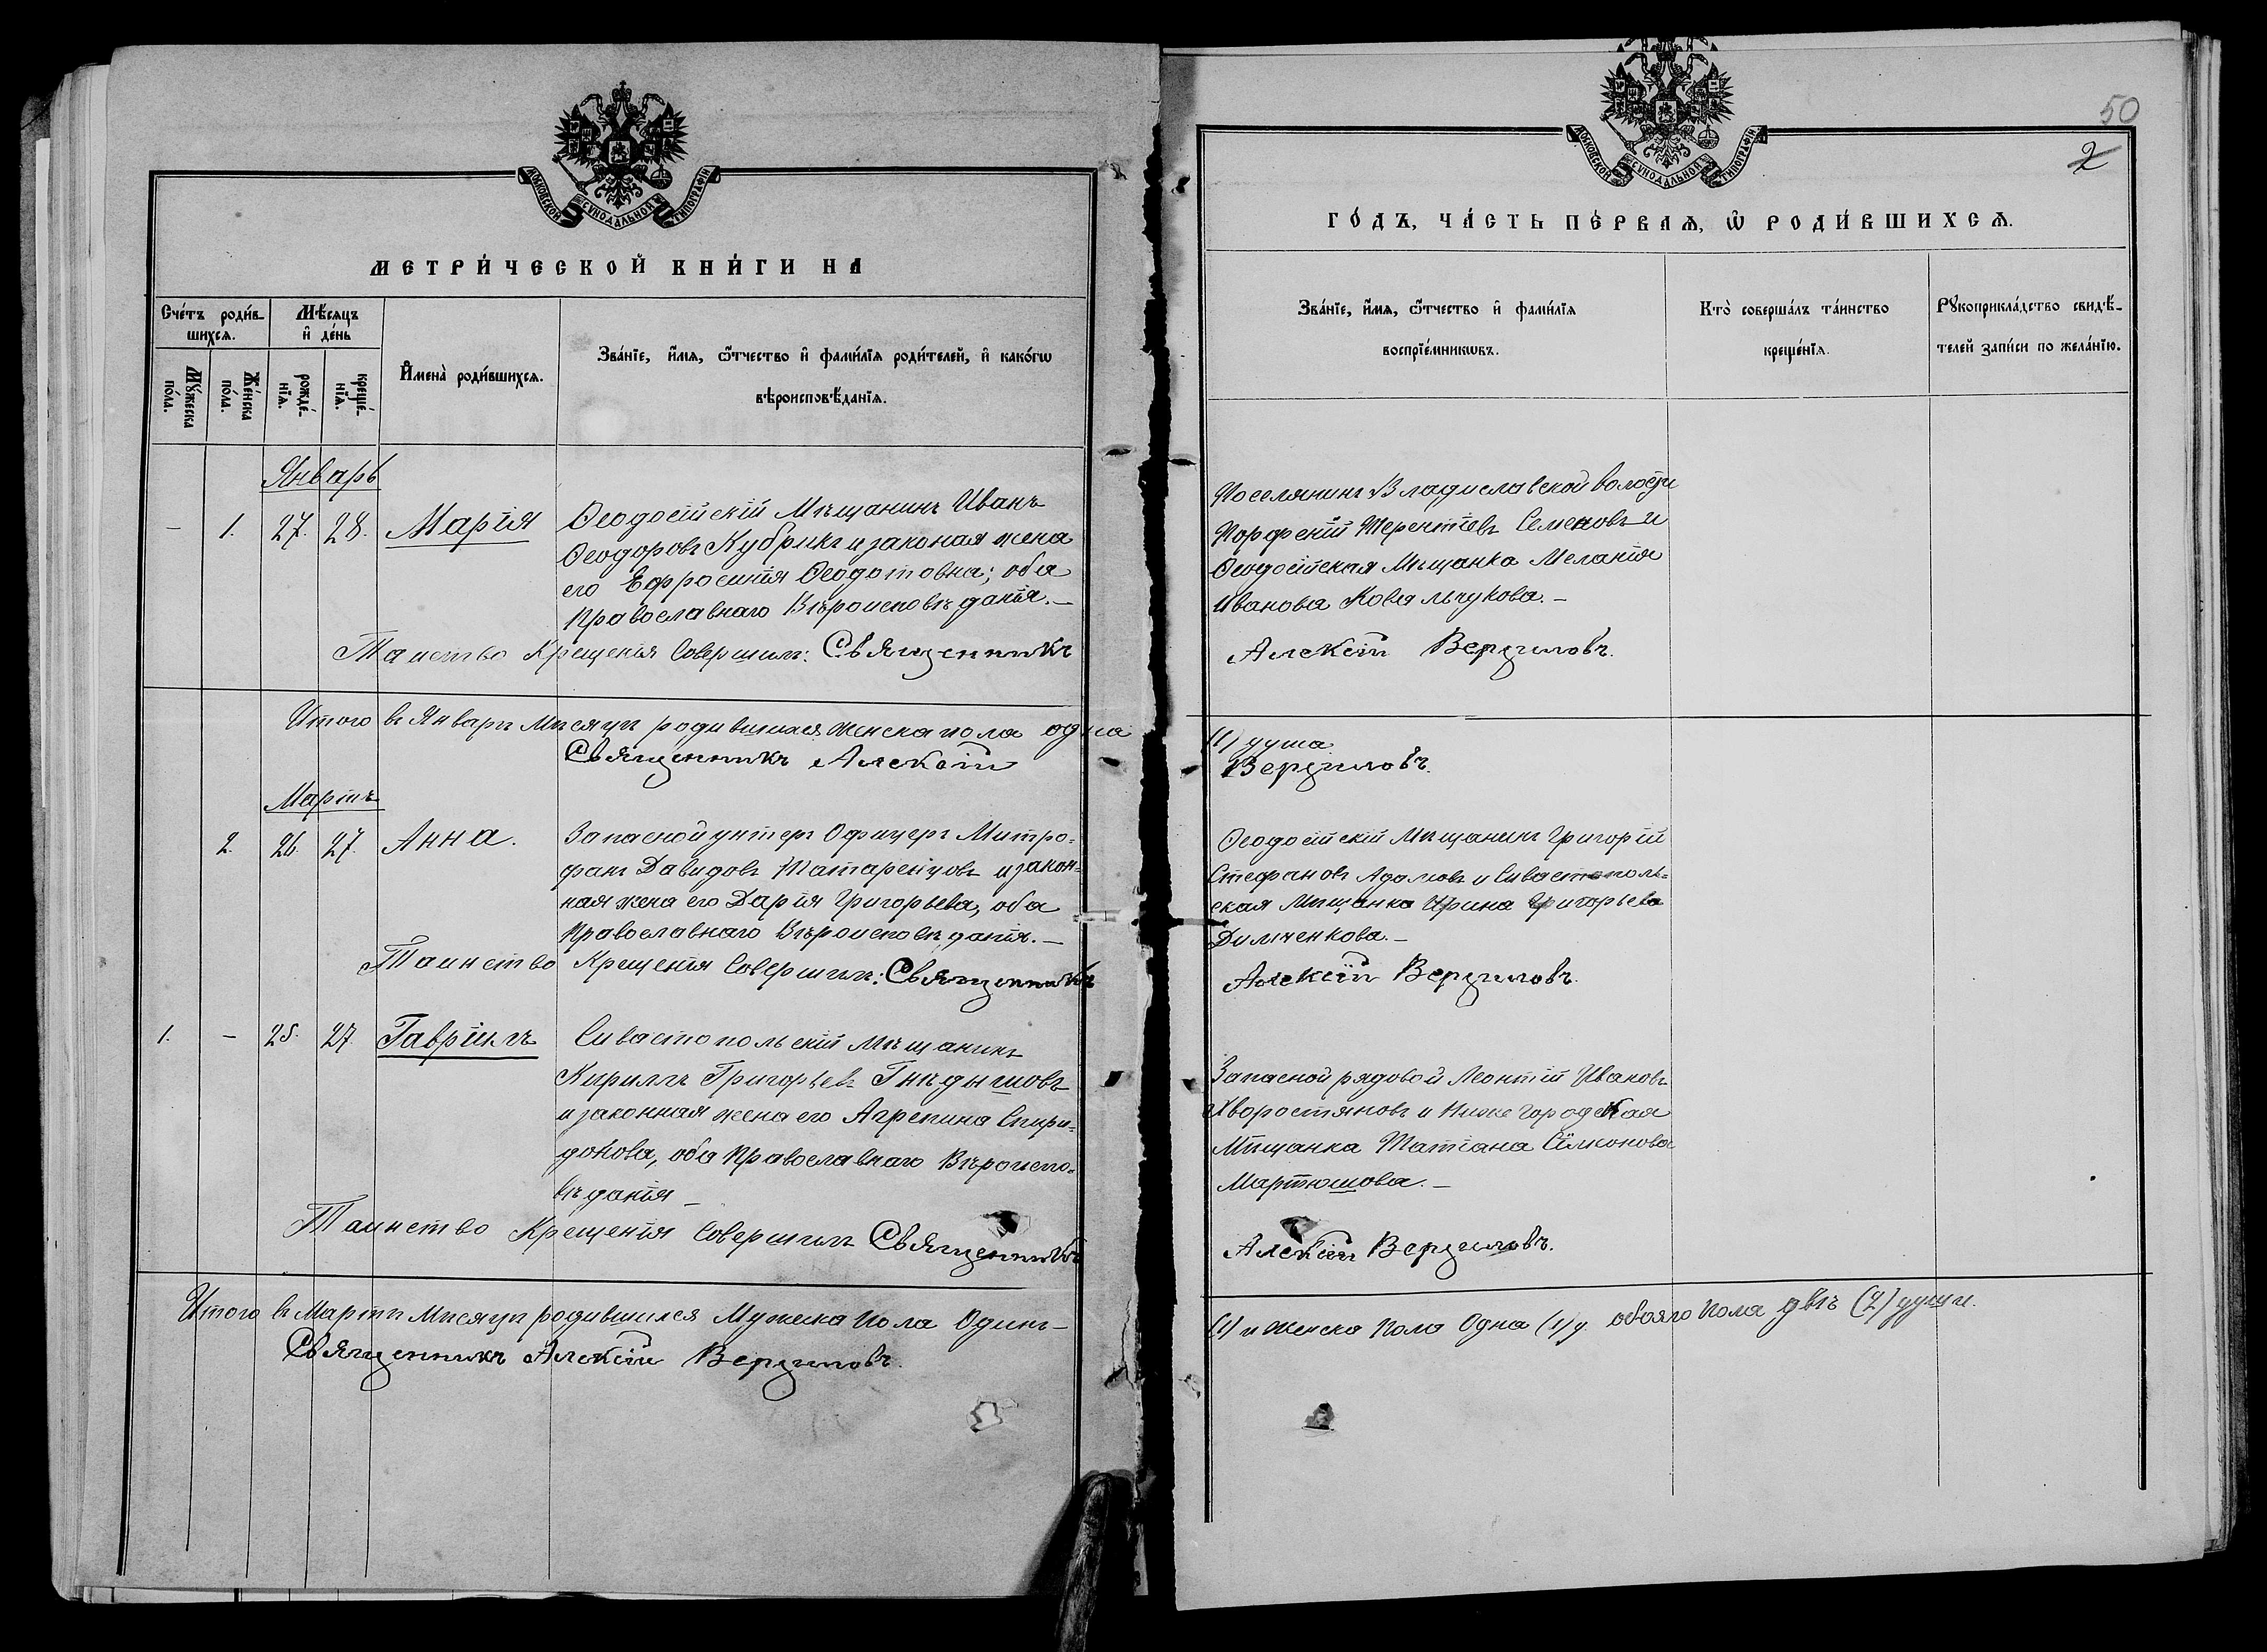 МОСКОВСКОЙ СѴНОДАЛЬНОЙ ТИПОГРАФІИ
МЕТРИ́ЧЕСКОЙ КНИ́ГИ НА
Сче́тъ роди́в-
шихсѧ.
Мѣ́сяцъ
и҆ де́нь
Мꙋ́жеска
по́ла.
Же́нска
по́ла.
рожде́-
нїѧ.
креще́-
нїѧ.
И҆мена̀ роди́вшихсѧ.
Зва́нїе, и҆́мѧ, ѻ҆́тчество и҆ фами́лїѧ роди́телей, и҆ како́гѡ
вѣроисповѣ́данїѧ.
Январь
- 1. 27. 28. Марія
Ѳеодосійскій Мѣщанинъ Иванъ
Ѳеодоровъ Кубрикъ и законая жена
его Ефросинія Ѳеодотовна; оба
Православнаго Вѣроисповѣданія.—
Таинство Крещенія Совершилъ: Священникъ
Итого въ Январѣ Мѣсяцѣ родившихся женска пола одна
Священникъ Алексій
Мартъ
2. 26. 27. Анна.
Запасной унтеръ Офицеръ Митро=
фанъ Давидовъ Татаренцовъ и закон=
ная жена его Дарія Григорьева, оба
Православнаго Вѣроисповѣданія.—
Таинство Крещенія Совершилъ: Священникъ
1. - 25. 27. Гавріилъ
Сивастопольскій Мѣщанинъ
Кириллъ Григорьевъ Гнѣдышовъ
и законная жена его Агрепина Спири=
донова, оба Православнаго Вѣроиспо=
вѣданія —
Таинство Крещенія Совершилъ Священникъ
Итого въ Мартѣ Мѣсяцѣ родившихся Мужеска пола Одинъ—
Священникъ Алексій Верзиловъ.
50
2
МОСКОВСКОЙ СѴНОДАЛЬНОЙ ТИПОГРАФІИ
ГО́ДЪ, ЧА́СТЬ ПЕ́РВАѦ, Ѡ҆ РОДИ́ВШИХСѦ.
Зва́нїе, и҆́мѧ, ѻ҆́тчество и҆ фами́лїѧ
воспрїе́мникѡвъ.
Кто̀ соверша́лъ та́инство
креще́нїѧ.
Рꙋкоприкла́дство свидѣ́-
телей за́писи по жела́нїю.
Поселянинъ Владиславской волости
Порфирій Терентіевъ Семеновъ и
Ѳеодосійская Мѣщанка Меланія
Иванова Ковальчукова.—
Алексій Верзиловъ.
(1) душа.
Верзиловъ.
Ѳеодосійскій Мѣщанинъ Григорій
Стефановъ Адамовъ и Сивастополь=
ская Мѣщанка Ирина Григорьева
Димченкова.—
Алексій Верзиловъ.
Запасной рядовой Леонтій Ивановъ
Хворостяновъ и Нижегородская
Мѣщанка Татіана Сімонова
Мартюшова.—
Алексій Верзиловъ.
(1) и женска пола Одна (1) д. обоего пола двѣ (2) души.